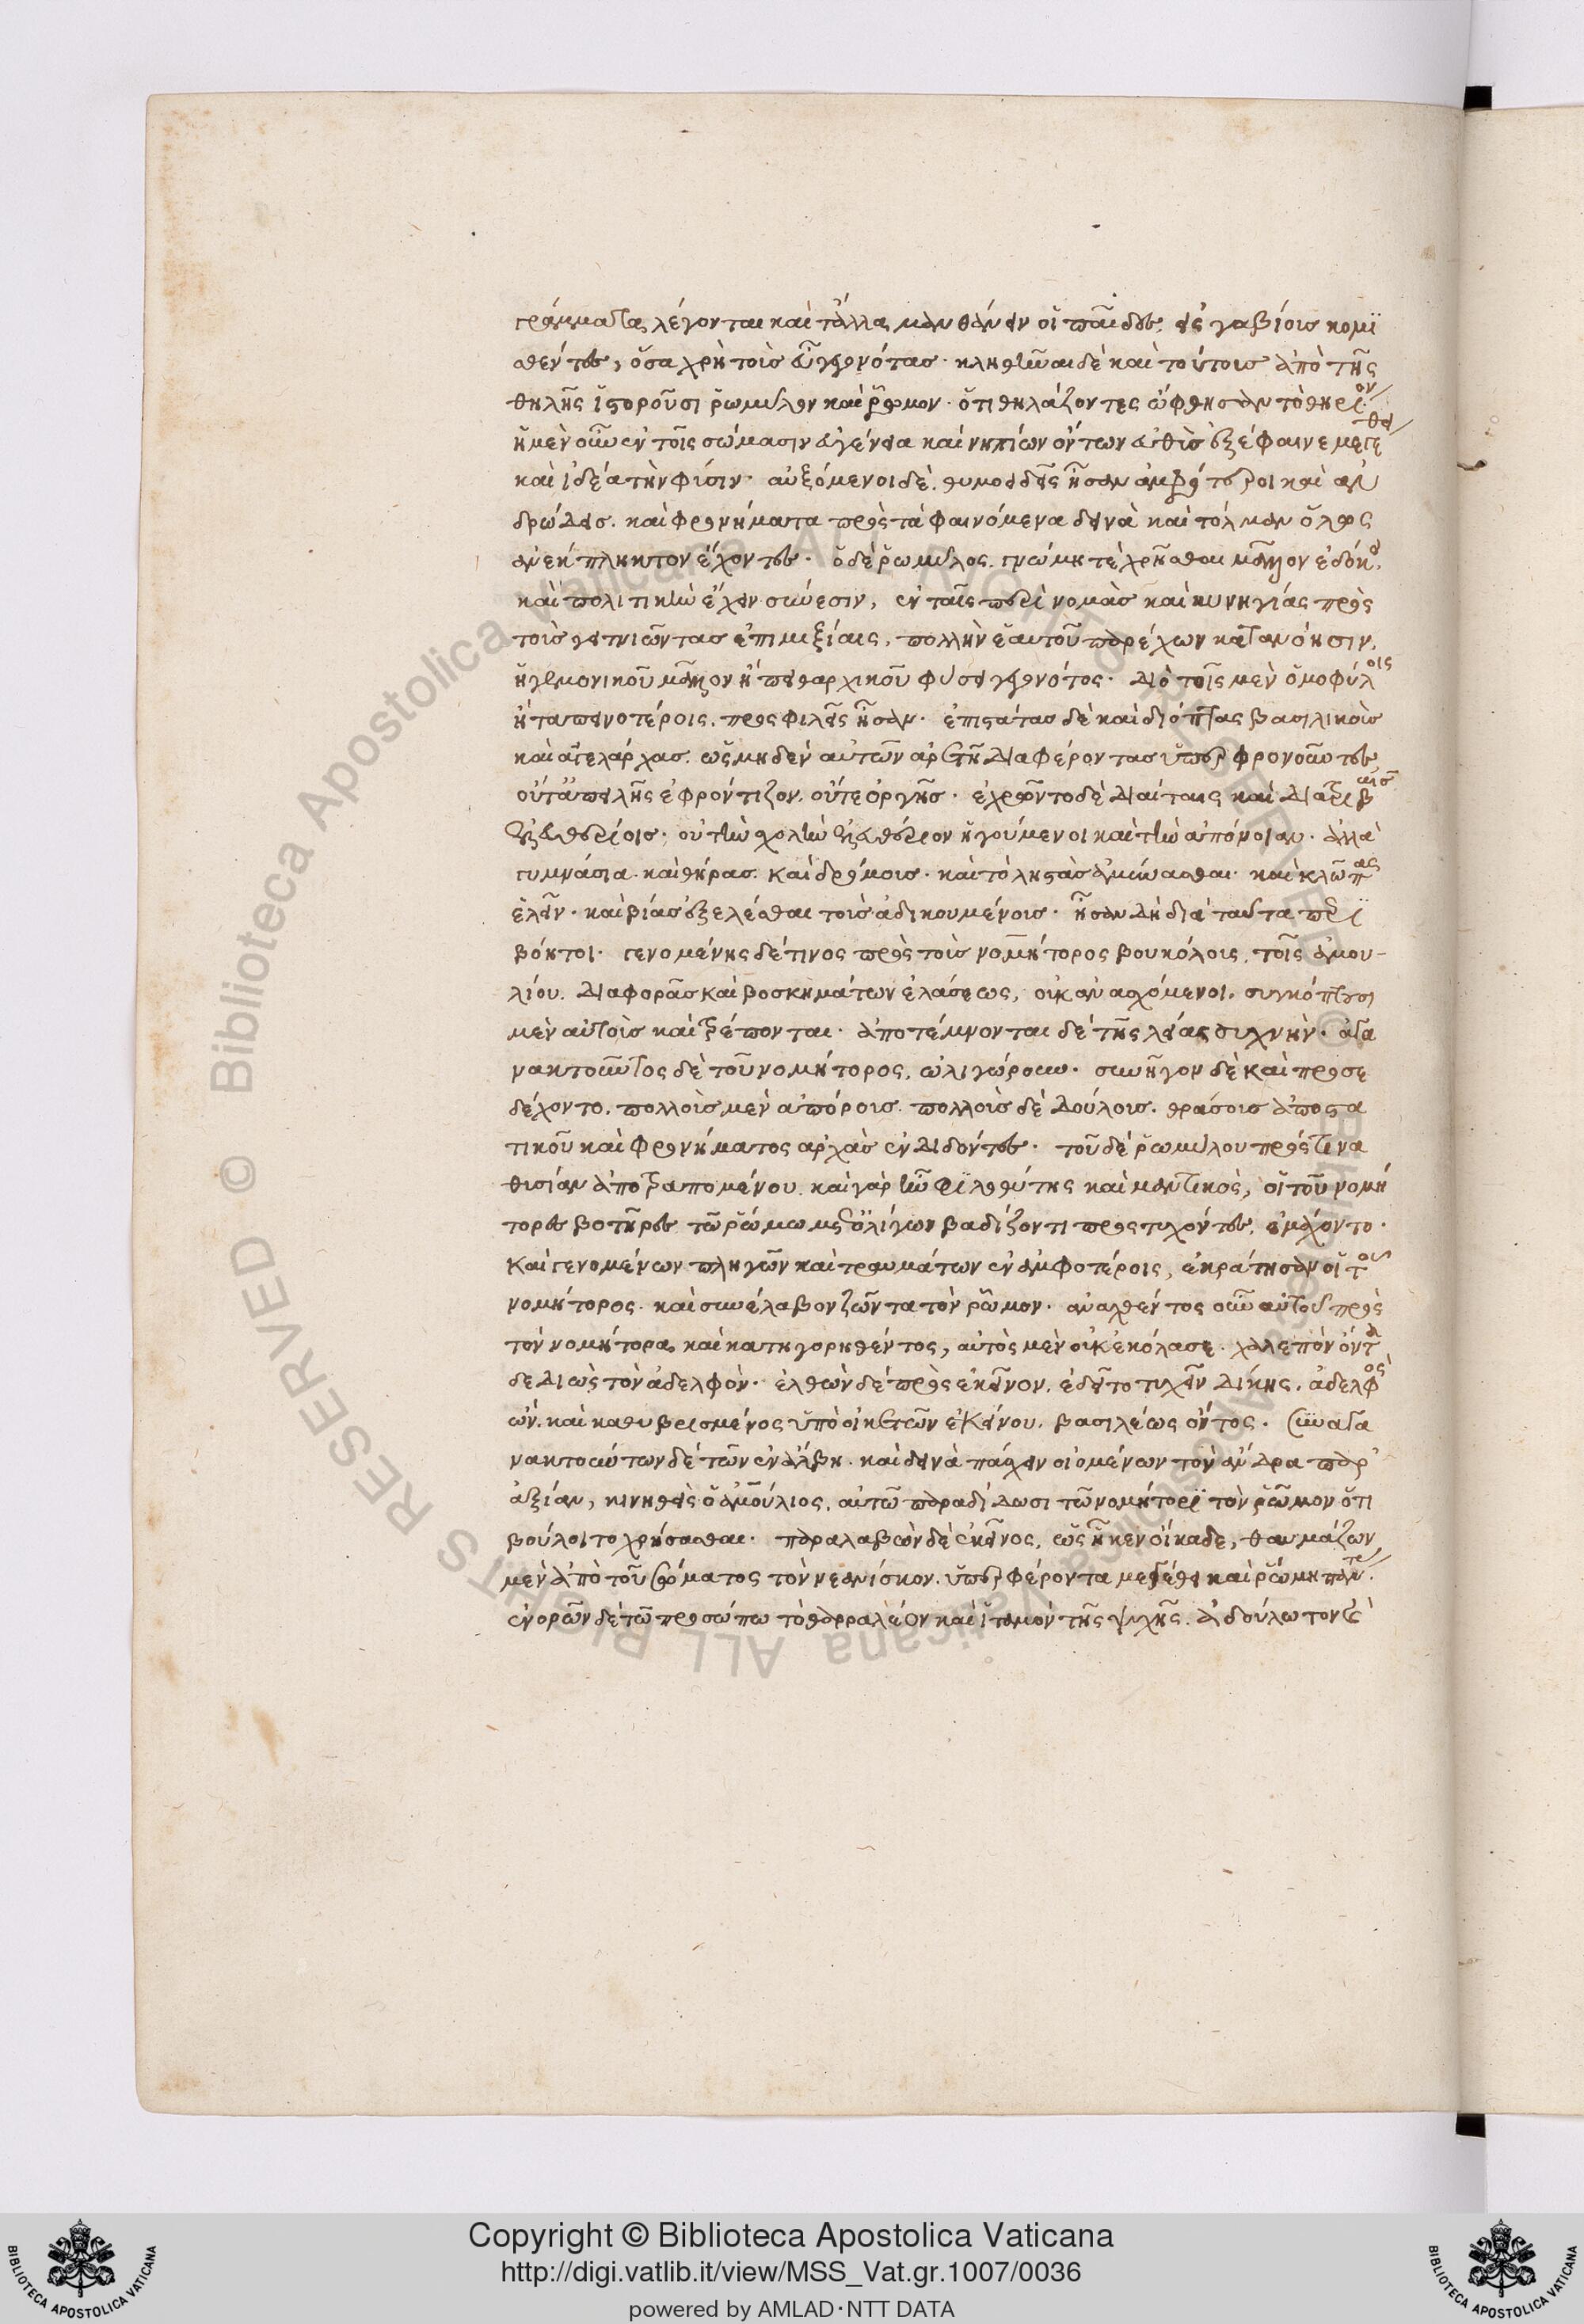 γράμματα λέγονται καὶ τἄλλα μανθάνειν οἱ παῖδες εἰς γαβίους κομι
σθέντες, ὅσα χρὴ τοὺς εὖ γεγονότας· κληθῆναι δὲ καὶ τούτους ἀπὸ τῆς
θηλῆς ἱστοροῦσι ῥωμύλον καὶ ῥῶμον· ὅτι θηλάζοντες ὤφθησαν τὸ θηρίον
ἡ μὲν οὖν ἐν τοῖς σώμασιν εὐγένεια καὶ νηπίων ὄντων εὐθὺς ἐξέφαινε μεγέθει
καὶ ἰδέα τὴν φύσιν· αὐξόμενοι δὲ, θυμοειδεῖς ἦσαν ἀμφότεροι καὶ ἀν
δρώδεις. καὶ φρονήματα πρὸς τὰ φαινόμενα δεινὰ καὶ τόλμαν ὅλως
ἀνέκπληκτον ἔχοντες· ὁ δὲ ῥωμύλος, γνώμη τὲ χρῆσθαι μᾶλλον ἐδόκει
καὶ πολιτικὴν ἔχειν σύνεσιν, ἐν ταῖς περὶ νομὰς καὶ κυνηγίας πρὸς
τοὺς γειτνιῶντας ἐπιμιξίαις, πολλὴν ἑαυτοῦ παρέχων κατανόησιν,
ἡγεμονικοῦ μᾶλλον ἢ πειθαρχικοῦ φύσει γεγονότος· διὸ τοῖς μὲν ὁμοφύλοις
ἢ ταπεινοτέροις, προσφιλεῖς ἦσαν· ἐπιστάτας δὲ καὶ διόπτας βασιλικοὺς
καὶ ἀγελάρχας. ὡς μηδὲν αὐτῶν ἀρετῇ διαφέροντας ὑπερφρονοῦντες,
οὔτ' ἀπειλῆς ἐφρόντιζον. οὔτε ὀργῆς· ἐχρῶντο δὲ διαίταις καὶ διατριβαῖς
ἐλευθερίοις· οὐ τὴν σχολὴν ἐλευθέριον ἡγούμενοι καὶ τὴν ἀπόνοιαν· ἀλλὰ
γυμνάσια· καὶ θήρας. καὶ δρόμους· καὶ τὸ ληστὰς ἀμύνασθαι· καὶ κλῶπας
ἑλεῖν· καὶ βίας ἐξελέσθαι τοὺς ἀδικουμένους· ἦσαν δὴ διὰ ταῦτα περι
βόητοι· γενομένης δέ τινος πρὸς τοὺς νομήτορος βουκόλους, τοῖς ἀμου-
λίου. διαφορᾶς καὶ βοσκημάτων ἐλάσεως, οὐκ ἀνασχόμενοι, συγκόπτουσι
μὲν αὐτοὺς καὶ τρέπονται· ἀποτέμνονται δὲ τῆς λείας συχνὴν· ἀγα
νακτοῦντος δὲ τοῦ νομήτορος, ὠλιγώρουν· συνῆγον δὲ καὶ προσε
δέχοντο, πολλοὺς μὲν ἀπόρους. πολλοὺς δὲ δούλους. θράσους ἀποστα
τικοῦ καὶ φρονήματος ἀρχὰς ἐνδιδόντες· τοῦ δὲ ῥωμύλου πρός τινα
θυσίαν ἀποτραπομένου. καὶ γὰρ ἦν φιλοθύτης καὶ μαντικὸς, οἱ τοῦ νομή
τορος βοτῆρες τῷ ῥώμῳ μετ' ὀλίγων βαδίζοντι προστυχόντες, ἐμάχοντο·
καὶ γενομένων πληγῶν καὶ τραυμάτων ἐν ἀμφοτέροις, ἐκράτησαν οἱ τοῦ
νομήτορος· καὶ συνέλαβον ζῶντα τὸν ῥῶμον· ἀναχθέντος οὖν αὐτοῦ πρὸς
τὸν νομήτορα, καὶ κατηγορηθέντος, αὐτὸς μὲν οὐκ ἐκόλασε· χαλεπὸν ὄντα
δεδιὼς τὸν ἀδελφὸν· ἐλθὼν δὲ πρὸς ἐκεῖνον, ἐδεῖτο τυχεῖν δίκης, ἀδελφὸς
ὤν, καὶ καθυβρισμένος ὑπὸ οἰκετῶν ἐκείνου, βασιλέως ὄντος· συναγα
νακτούντων δὲ τῶν ἐν ἄλβῃ· καὶ δεινὰ πάσχειν οἰομένων τὸν ἄνδρα παρ'
ἀξίαν, κινηθεὶς ὁ ἀμούλιος, αὐτῷ παραδίδωσι τῷ νομήτορι τὸν ῥῶμον ὅτι
βούλοιτο χρήσασθαι· παραλαβὼν δὲ ἐκεῖνος, ὡς ἧκεν οἴκαδε, θαυμάζων
μὲν ἀπὸ τοῦ σώματος τὸν νεανίσκον, ὑπερφέροντα μεγέθει καὶ ῥώμῃ πάντας
ἐνορῶν δὲ τῷ προσώπῳ τὸ θαρραλέον καὶ ἰταμὸν τῆς ψυχῆς, ἀδούλωτον καὶ